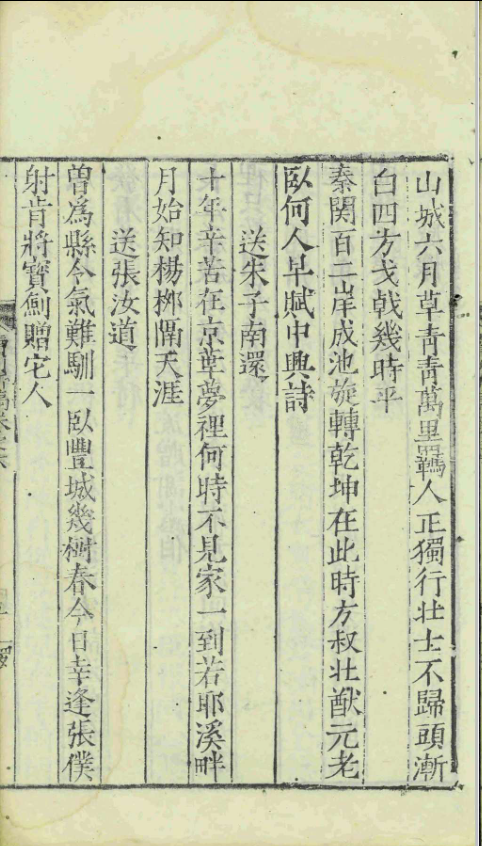 山城六月草青青萬里羈人正獨行壮士不歸頭漸
白四方戈戟幾時平
秦関百二岸成池旋轉乾坤在此時方叔壮猷元老
臥何人早賦中興詩
送朱子南還
十年辛苦在京華夢裡何時不見家一到若耶溪畔
月始知楊栁隔天涯
送張汝道
曽為縣令氣難馴一臥豐城幾樹春今日幸逢張僕
射肯將寳劍贈它人